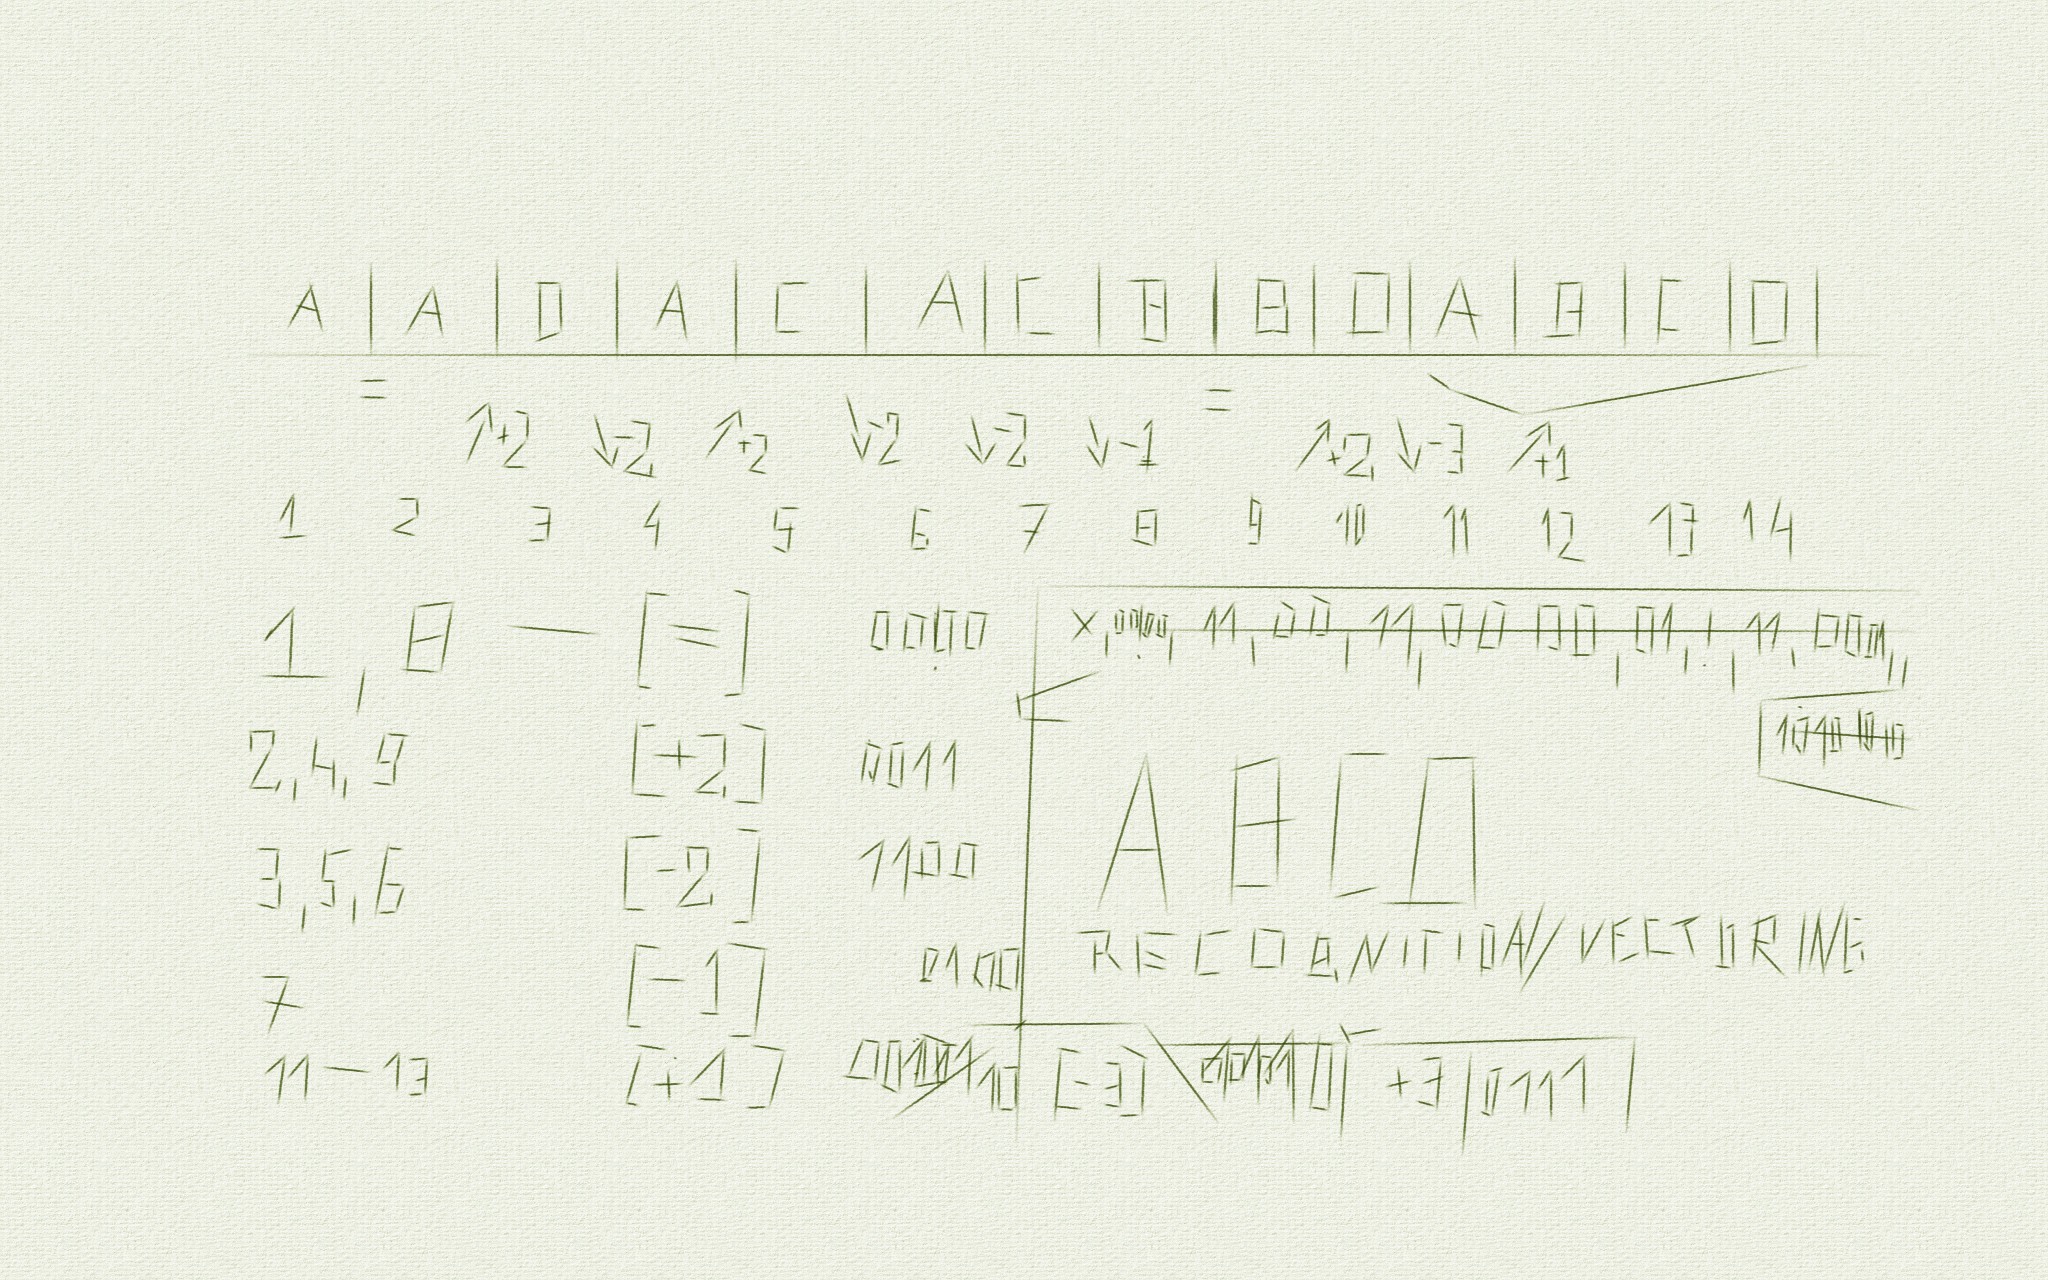 A | A | D | A | C | A | C | B | B | D | A | B | C | D |
= ↑+2 ↓-2 ↑+2 ↓-2 ↓-2 ↓-1 = ↑+2 ↓-3 ↑+1
1 2 3 4 5 6 7 8 9 10 11 12 13 14
1, 8 — [=] 0000
2, 4, 9 [+2] 0011
3, 5, 6 [-2] 1100
7 [-1] 0100
11 — 13 [+1] 10 [-3] +3 | 0111 |
A B C D
RECOGNITION/VECTORING